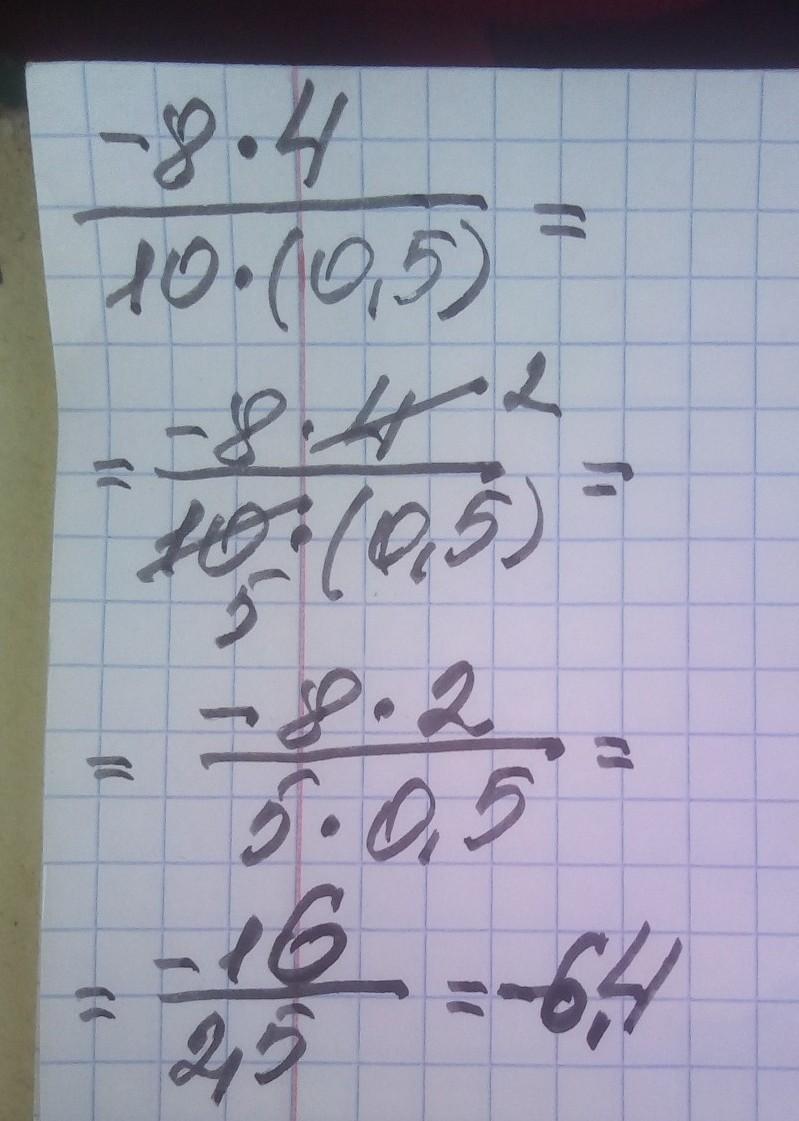 -8·4
10·(0,5) =
= -8·4 2
10·(0,5) =
5
= -8·2
5·0,5 =
= -16
2,5 = -6,4